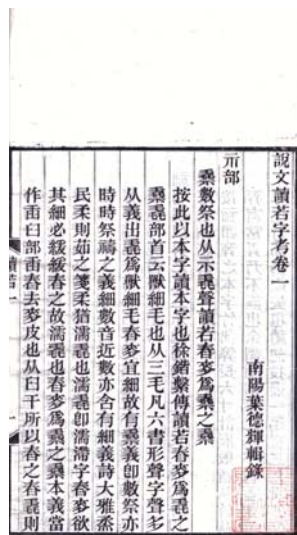 說文讀若字考卷一
南陽葉德輝輯錄
示部
𥜹數祭也从示毳聲讀若舂麥爲𥜹之𥜹
按此以本字讀本字也徐鍇繫傳讀若舂麥爲毳之
𥜹毳部首云獸細毛也从三毛凡六書形聲字聲多
从義出毳爲獸細毛舂麥宜細故有毳義卽數祭亦
時時祭禱之義細數音近數亦含有細義詩大雅烝
民柔則茹之箋柔猶濡毳也濡毳卽濡滯字舂麥欲
其細必緩緩舂之故濡毳也舂麥爲毳之毳本義當
作臿臼部臿舂去麥皮也从臼干所以舂之舂毳則